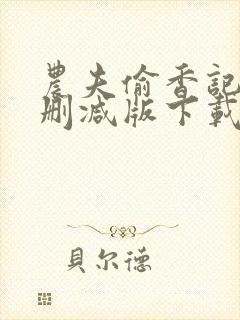 農夫偷香記
刪減版下載
貝尔德